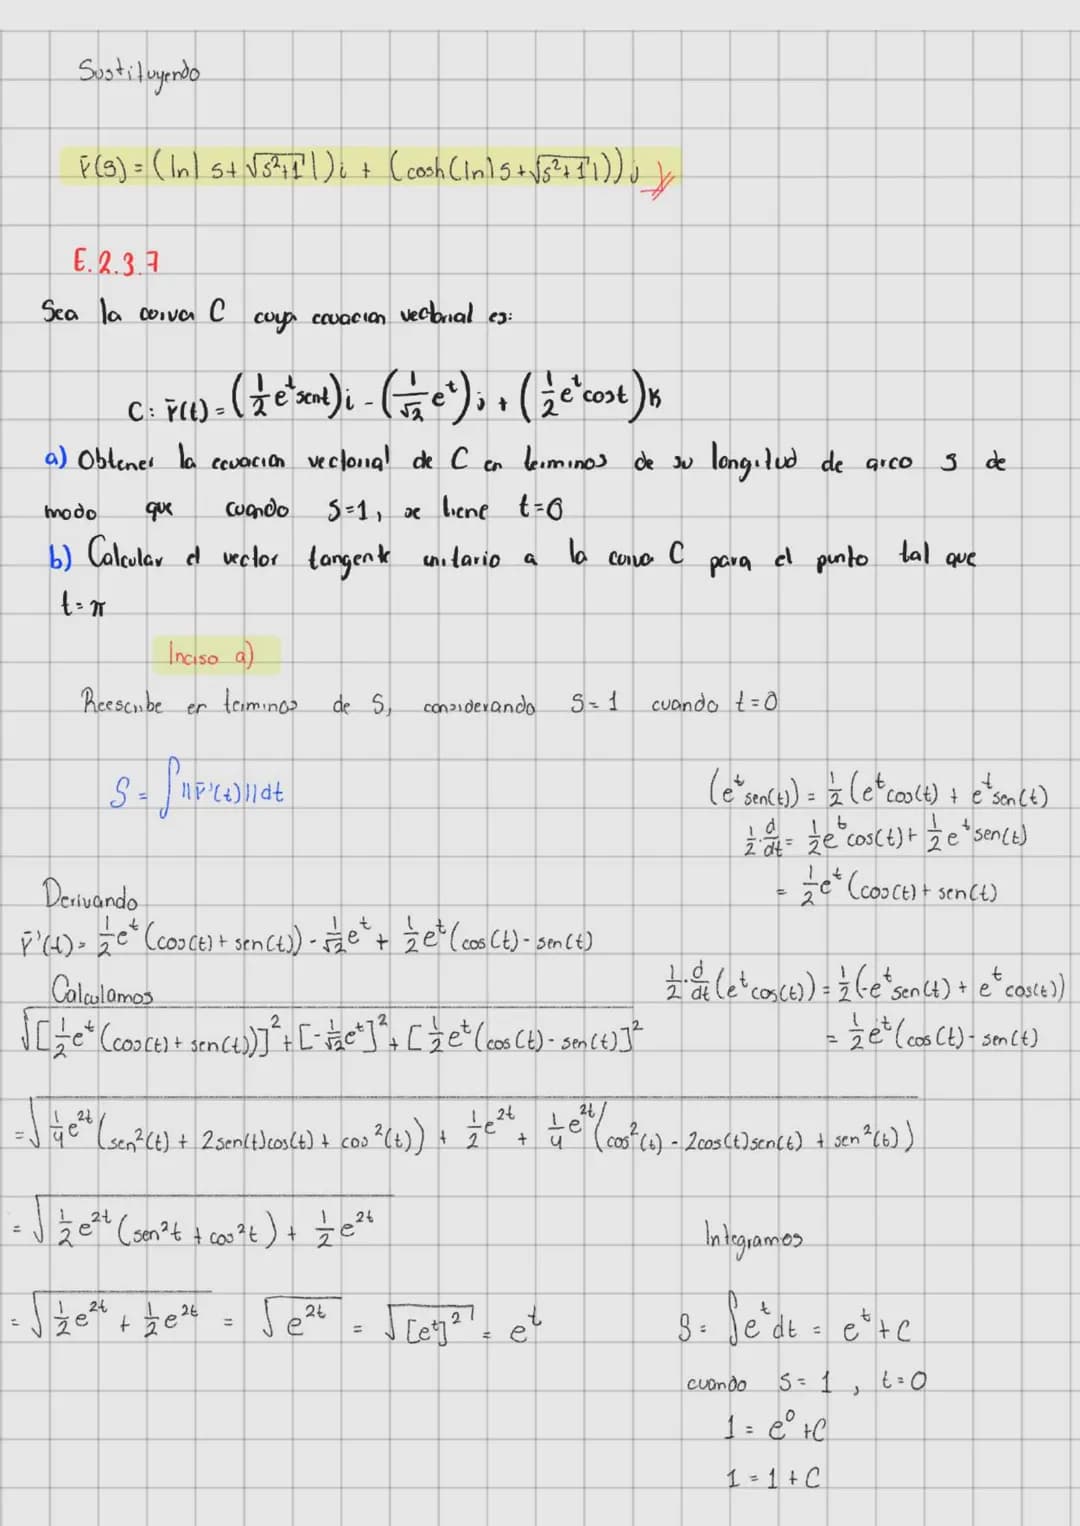 Sustituyendo
r̄(s) = (ln|s+√(s²+1)|)i + (cosh(ln|s+√(s²+1)|))j
E.2.3.7
Sea la curva C cuya ecuacion vectorial es:
C: r̄(t) = (1/2 e^t sent)i - (1/√2 e^t)j + (1/2 e^t cost)k
a) Obtener la ecuacion vectorial de C en terminos de su longitud de arco s de
modo que cuando S=1, se tiene t=0
b) Calcular el vector tangente unitario a la curva C para el punto tal que
t=π
Inciso a)
Reescribe en terminos de S, considerando S=1 cuando t=0
S = ∫||r̄'(t)||dt
(e^t sen(t)) = 1/2 (e^t cos(t) + e^t sen(t)
1/2 · d/dt = 1/2 e^t cos(t) + 1/2 e^t sen(t)
= 1/2 e^t (cos(t) + sen(t)
Derivando
r̄'(t) = 1/2 e^t (cos(t) + sen(t)) - 1/√2 e^t + 1/2 e^t (cos(t) - sen(t)
1/2 · d/dt (e^t cos(t)) = 1/2 (-e^t sen(t) + e^t cos(t))
= 1/2 e^t (cos(t) - sen(t)
Calculamos
√([1/2 e^t (cos(t) + sen(t))]² + [-1/√2 e^t]² + [1/2 e^t (cos(t) - sen(t)]²
= √(1/4 e^2t (sen²(t) + 2sen(t)cos(t) + cos²(t)) + 1/2 e^2t + 1/4 e^2t (cos²(t) - 2cos(t)sen(t) + sen²(t))
= √(1/2 e^2t (sen²t + cos²t) + 1/2 e^2t
= √(1/2 e^2t + 1/2 e^2t) = √(e^2t) = √([e^t]²) = e^t
Integramos
S = ∫e^t dt = e^t + C
cuando S=1, t=0
1 = e^0 + C
1 = 1 + C